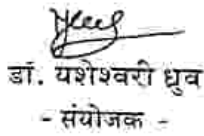 डॉ. यशेश्वरी धुव
- संयोजक -